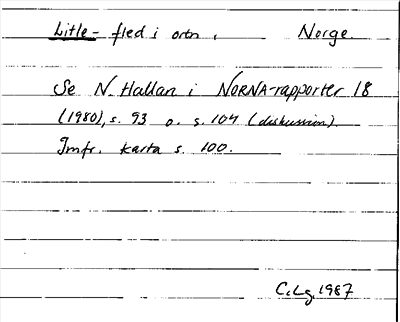 Litle- fled i ortn, Norge.
Se N. Hallan i NORNA-rapporter 18
(1980), s. 93 o. s. 104 (diskussion).
Jmfr. karta s. 100.
C. Lg. 1987